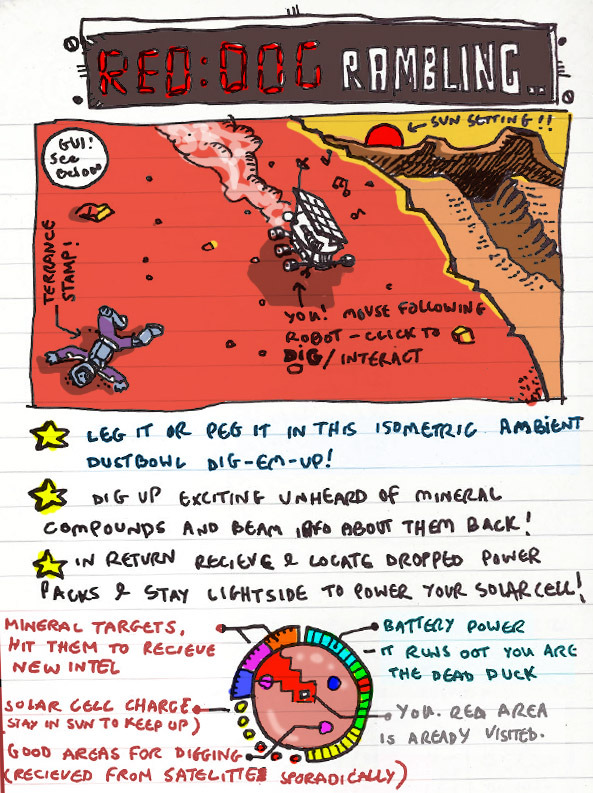 RED:DOG RAMBLING..
GUI!
See
below
← SUN SETTING!!
TERRANCE
STAMP!
YOU! MOUSE FOLLOWING
ROBOT - CLICK TO
DIG/INTERACT
LEG IT OR PEG IT IN THIS ISOMETRIC AMBIENT
DUSTBOWL DIG-EM-UP!
DIG UP EXCITING UNHEARD OF MINERAL
COMPOUNDS AND BEAM INFO ABOUT THEM BACK!
IN RETURN RECIEVE & LOCATE DROPPED POWER
PACKS & STAY LIGHTSIDE TO POWER YOUR SOLAR CELL!
MINERAL TARGETS,
HIT THEM TO RECIEVE
NEW INTEL
SOLAR CELL CHARGE
STAY IN SUN TO KEEP UP)
GOOD AREAS FOR DIGGING
(RECIEVED FROM SATELITTES SPORADICALLY)
BATTERY POWER
- IT RUNS OUT YOU ARE
THE DEAD DUCK
YOU. RED AREA
IS AREADY VISITED.